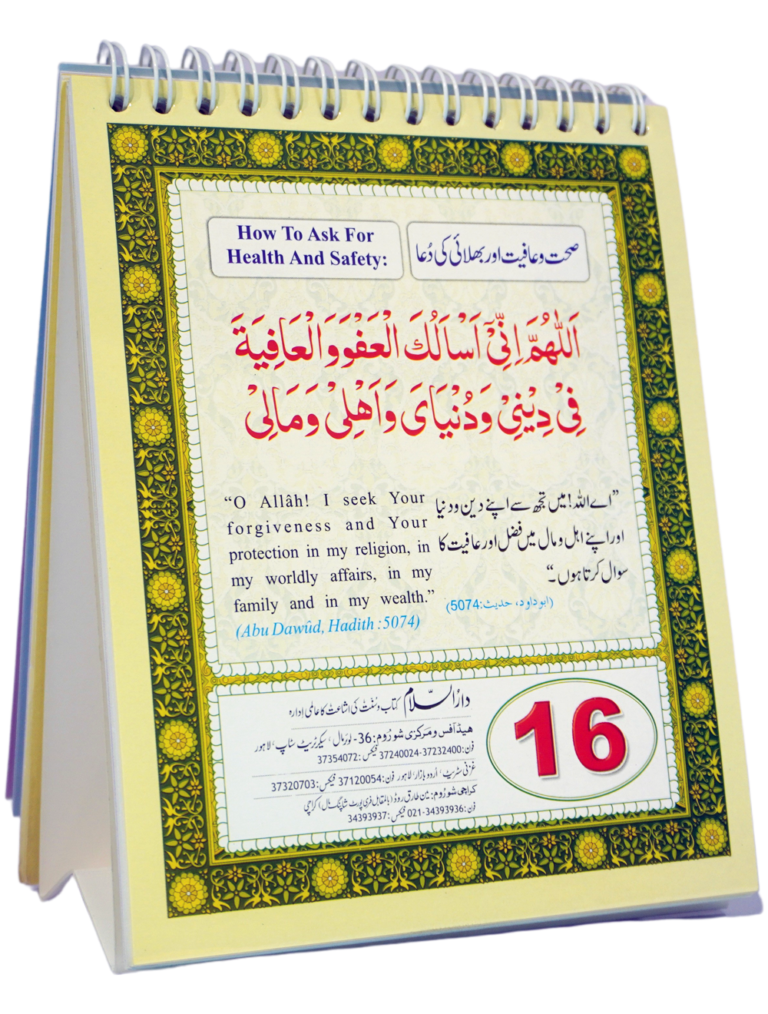 How To Ask For
Health And Safety:
صحت و عافیت اور بھلائی کی دُعا
اَللّٰهُمَّ اِنِّیْٓ اَسْاَلُكَ الْعَفْوَ وَالْعَافِيَةَ
فِیْ دِيْنِیْ وَدُنْيَایَ وَاَهْلِیْ وَمَالِیْ
“O Allâh! I seek Your
forgiveness and Your
protection in my religion, in
my worldly affairs, in my
family and in my wealth.”
(Abu Dawûd, Hadith :5074)
”اے اللہ! میں تجھ سے اپنے دین و دنیا
اور اپنے اہل و مال میں فضل اور عافیت کا
سوال کرتا ہوں۔“
(ابوداود، حدیث:5074)
دارالسلام کتاب و سنت کی اشاعت کا عالمی ادارہ
ہیڈ آفس و مرکزی شوروم: 36- لوئر مال، سیکرٹریٹ سٹاپ، لاہور
فون: 37232400-37240024 فیکس: 37354072
غزنی سٹریٹ، اردو بازار، لاہور فون: 37120054 فیکس: 37320703
کراچی شوروم: مین طارق روڈ (بالمقابل فری پورٹ شاپنگ مال) کراچی
فون: 34393936-021 فیکس: 34393937
16